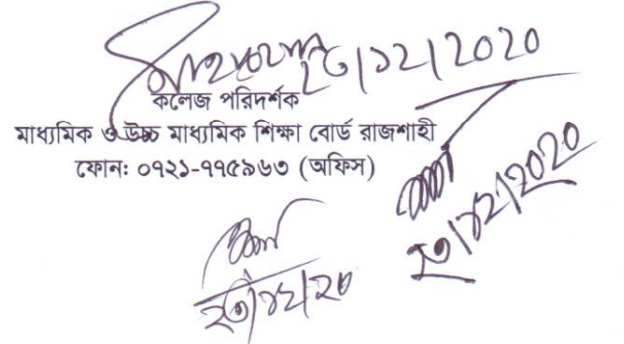 ২৩/১২/2020
কলেজ পরিদর্শক
মাধ্যমিক ও উচ্চ মাধ্যমিক শিক্ষা বোর্ড রাজশাহী
ফোন: ০৭২১-৭৭৫৯৬৩ (অফিস)
২৩/১২/2020
২৩/১২/২০